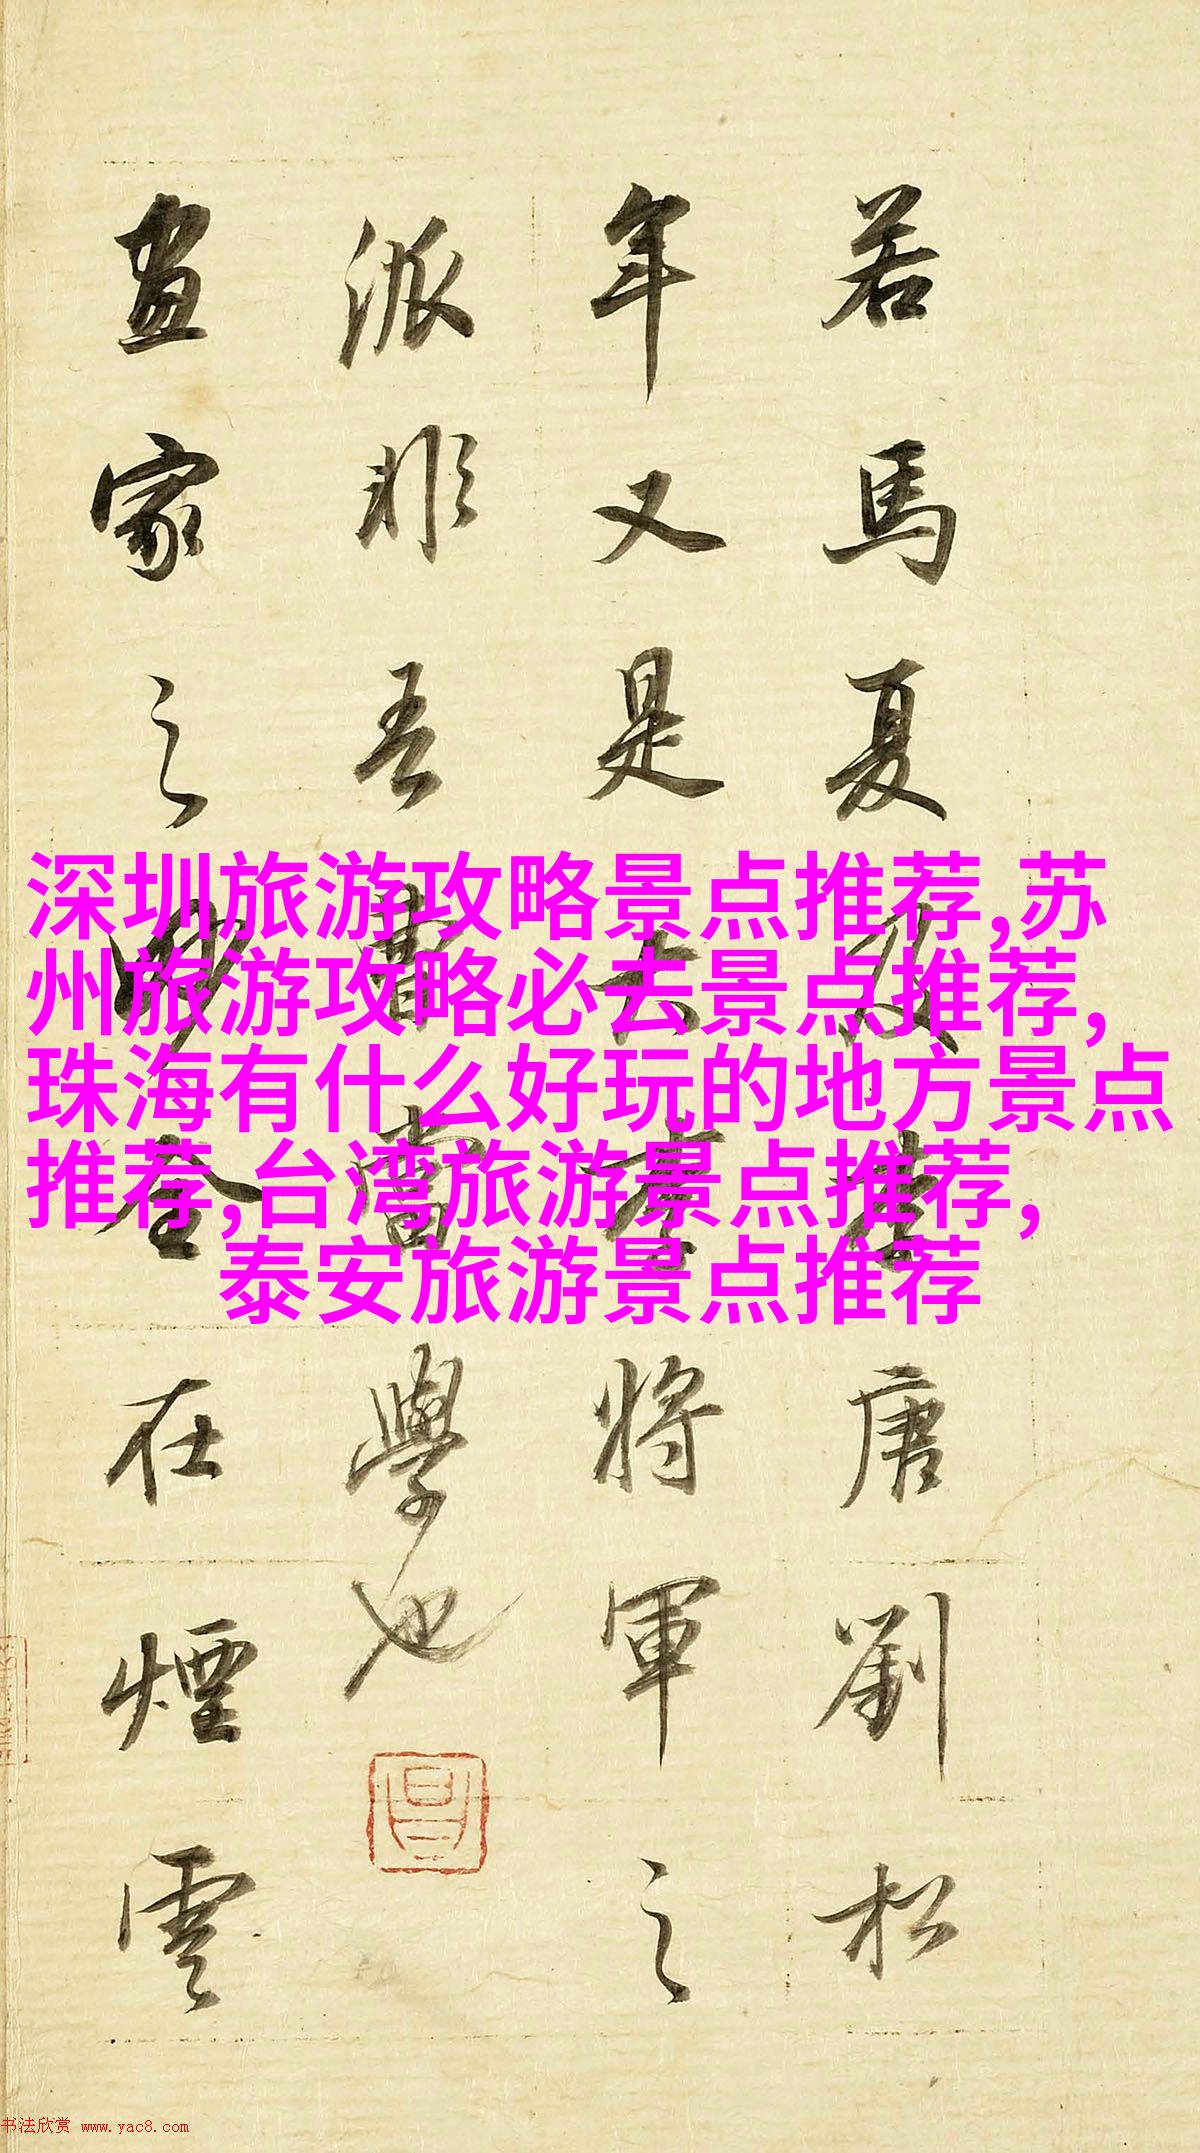 若馬夏及李唐劉松
年又是大李將軍之
派非吾曹當學也
畫家之妙全在煙雲
深圳旅游攻略景点推荐,苏
州旅游攻略必去景点推荐,
珠海有什么好玩的地方景点
推荐,台湾旅游景点推荐,
泰安旅游景点推荐
书法欣赏 www.yac8.com